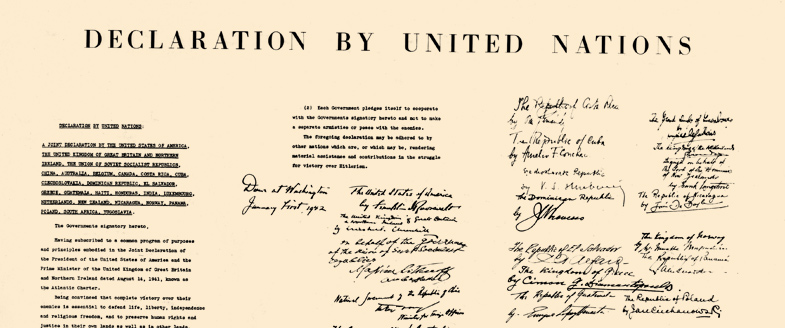 DECLARATION BY UNITED NATIONS
DECLARATION BY UNITED NATIONS:
A JOINT DECLARATION BY THE UNITED STATES OF AMERICA,
THE UNITED KINGDOM OF GREAT BRITAIN AND NORTHERN
IRELAND, THE UNION OF SOVIET SOCIALIST REPUBLICS,
CHINA, AUSTRALIA, BELGIUM, CANADA, COSTA RICA, CUBA,
CZECHOSLOVAKIA, DOMINICAN REPUBLIC, EL SALVADOR,
GREECE, GUATEMALA, HAITI, HONDURAS, INDIA, LUXEMBOURG,
NETHERLANDS, NEW ZEALAND, NICARAGUA, NORWAY, PANAMA,
POLAND, SOUTH AFRICA, YUGOSLAVIA.
The Governments signatory hereto,
Having subscribed to a common program of purposes
and principles embodied in the Joint Declaration of
the President of the United States of America and the
Prime Minister of the United Kingdom of Great Britain
and Northern Ireland dated August 14, 1941, known as
the Atlantic Charter.
Being convinced that complete victory over their
enemies is essential to defend life, liberty, independence
and religious freedom, and to preserve human rights and
justice in their own lands as well as in other lands
(2) Each Government pledges itself to cooperate
with the Governments signatory hereto and not to make
a separate armistice or peace with the enemies.
The foregoing declaration may be adhered to by
other nations which are, or which may be, rendering
material assistance and contributions in the struggle
for victory over Hitlerism.
Done at Washington
January First, 1942
The United States of America
by Franklin D Roosevelt
The United Kingdom of Great Britain
& Northern Ireland
by Winston Churchill
on behalf of the Government
of the Union of Soviet Socialist
Republics
Maxim Litvinoff
Ambassador
National Government of the Republic of China
Minister for Foreign Affairs
The Republic of Costa Rica
by
The Republic of Cuba
by Aurelio F. Concheso
Czechoslovak Republic
by V. S. Hurban
The Dominican Republic
by
The Republic of El Salvador
by
The Kingdom of Greece
by Cimon
The Republic of Guatemala
by
The Grand Duchy of Luxembourg
by
The Republic of Nicaragua
by
The Kingdom of Norway
by
The Republic of Panama
by
The Republic of Poland
by Jan Ciechanowski